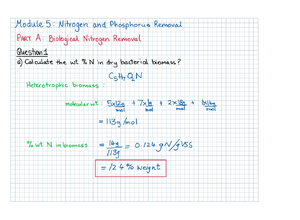 Module 5: Nitrogen and Phosphorus Removal
PART A Biological Nitrogen Removal
Question 1
a) Calculate the wt % N in dry bacterial biomass?
C5H7O2N
Heterotrophic biomass:
molecular wt: 5x12g/mol + 7x1g/mol + 2x16g/mol +
= 113g/mol
% wt N in biomass = 14g/113g = 0.124 gN/gVSS
= 12.4 % weight